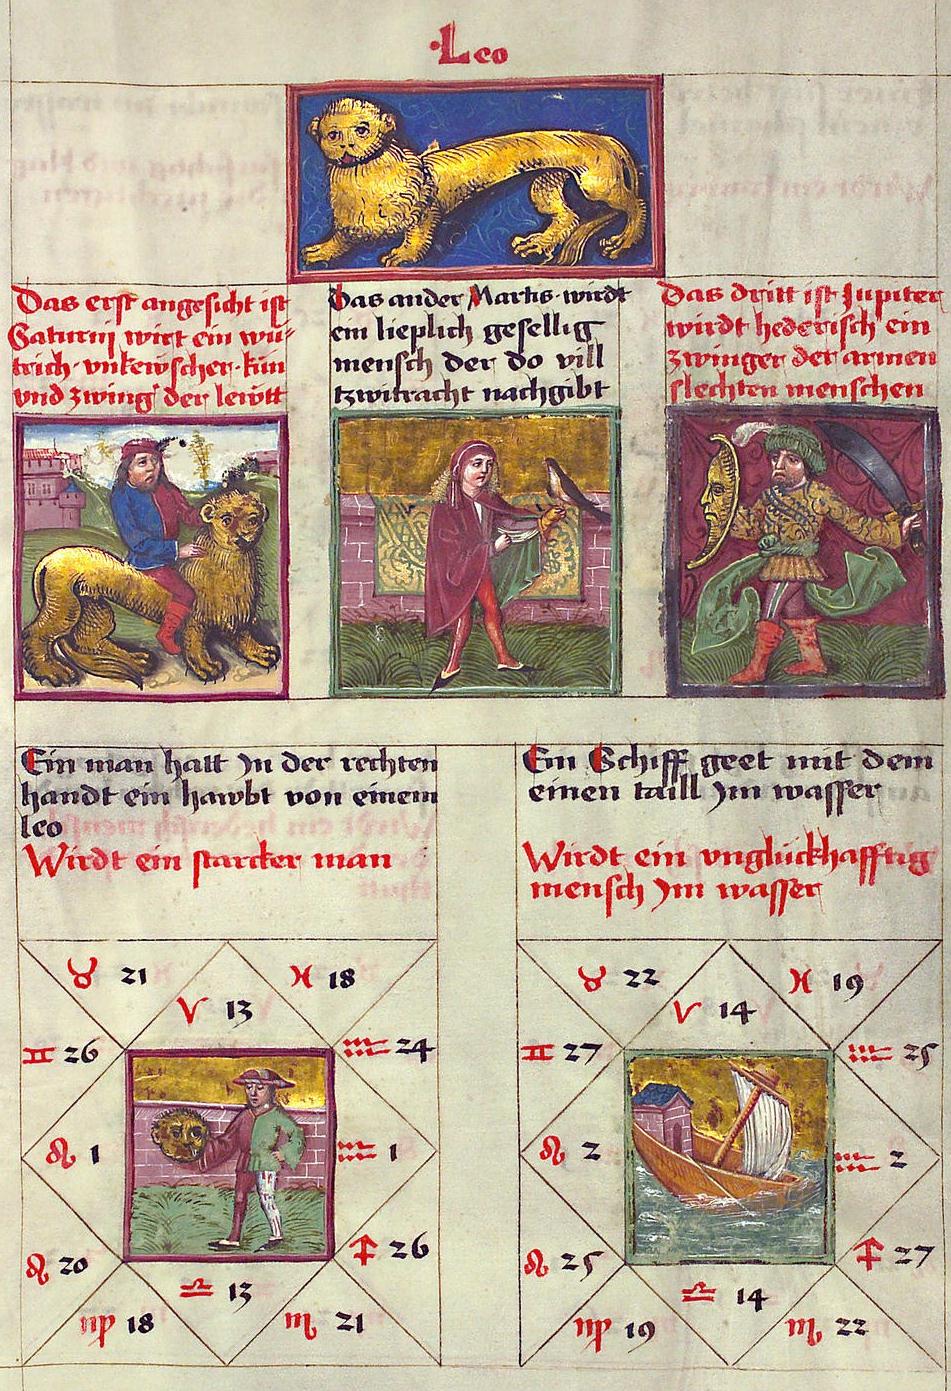 ·Leo
Das erst angesicht ist
Saturnj wirt ein wü-
trich · vnkewscher · kün
vnd zwing der lewtt
Das ander Martis · wirdt
ein lieplich gesellig
mensch der do vill
tzwitracht nachgibt
Das dritt ist Jupiter
wirdt hederisch ein
zwinger der armen
slechten menschen
Ein man halt Jn der rechten
handt ein hawbt von einem
leo
Wirdt ein starcker man
♉ 21
♈ 13
♓ 18
♊ 26
♒ 24
♌ 1
♒ 1
♌ 20
♐ 26
♎ 13
♍ 18
♏ 21
Ein Schiff geet mit dem
einen taill Jm wasser
Wirdt ein vnglückhafftig
mensch Jm wasser
♉ 22
♈ 14
♓ 19
♊ 27
♒ 25
♌ 2
♒ 2
♌ 25
♐ 27
♎ 14
♍ 19
♏ 22